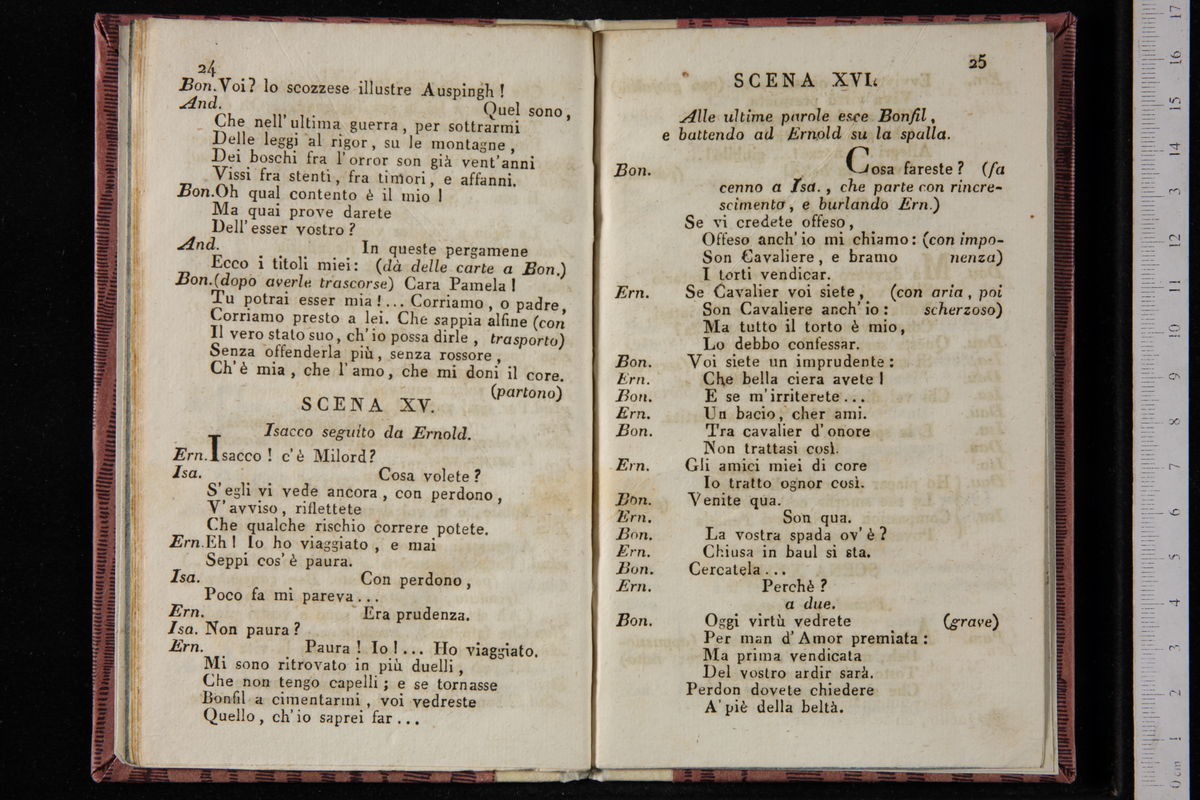 24
Bon. Voi? lo scozzese illustre Auspingh!
And. Quel sono,
Che nell'ultima guerra, per sottrarmi
Delle leggi al rigor, su le montagne,
Dei boschi fra l'orror son già vent'anni
Vissi fra stenti, fra timori, e affanni.
Bon. Oh qual contento è il mio!
Ma quai prove darete
Dell'esser vostro?
And. In queste pergamene
Ecco i titoli miei: (dà delle carte a Bon.)
Bon. (dopo averle trascorse) Cara Pamela!
Tu potrai esser mia!... Corriamo, o padre,
Corriamo presto a lei. Che sappia alfine (con
Il vero stato suo, ch'io possa dirle, trasporto)
Senza offenderla più, senza rossore,
Ch'è mia, che l'amo, che mi doni il core.
(partono)
SCENA XV.
Isacco seguito da Ernold.
Ern. Isacco! c'è Milord?
Isa. Cosa volete?
S'egli vi vede ancora, con perdono,
V'avviso, riflettete
Che qualche rischio correre potete.
Ern. Eh! Io ho viaggiato, e mai
Seppi cos'è paura.
Isa. Con perdono,
Poco fa mi pareva...
Ern. Era prudenza.
Isa. Non paura?
Ern. Paura! Io!... Ho viaggiato.
Mi sono ritrovato in più duelli,
Che non tengo capelli; e se tornasse
Bonfil a cimentarmi, voi vedreste
Quello, ch'io saprei far...
25
SCENA XVI.
Alle ultime parole esce Bonfil,
e battendo ad Ernold su la spalla.
Bon. Cosa fareste? (fa
cenno a Isa., che parte con rincre-
scimento, e burlando Ern.)
Se vi credete offeso,
Offeso anch'io mi chiamo: (con impo-
Son Cavaliere, e bramo nenza)
I torti vendicar.
Ern. Se Cavalier voi siete, (con aria, poi
Son Cavaliere anch'io: scherzoso)
Ma tutto il torto è mio,
Lo debbo confessar.
Bon. Voi siete un imprudente:
Ern. Che bella ciera avete!
Bon. E se m'irriterete...
Ern. Un bacio, cher ami.
Bon. Tra cavalier d'onore
Non trattasi così.
Ern. Gli amici miei di core
Io tratto ognor così.
Bon. Venite qua.
Ern. Son qua.
Bon. La vostra spada ov'è?
Ern. Chiusa in baul si sta.
Bon. Cercatela...
Ern. Perchè?
a due.
Bon. Oggi virtù vedrete (grave)
Per man d'Amor premiata:
Ma prima vendicata
Del vostro ardir sarà.
Perdon dovete chiedere
A'piè della beltà.
0 cm 1 2 3 4 5 6 7 8 9 10 11 12 13 14 15 16 17